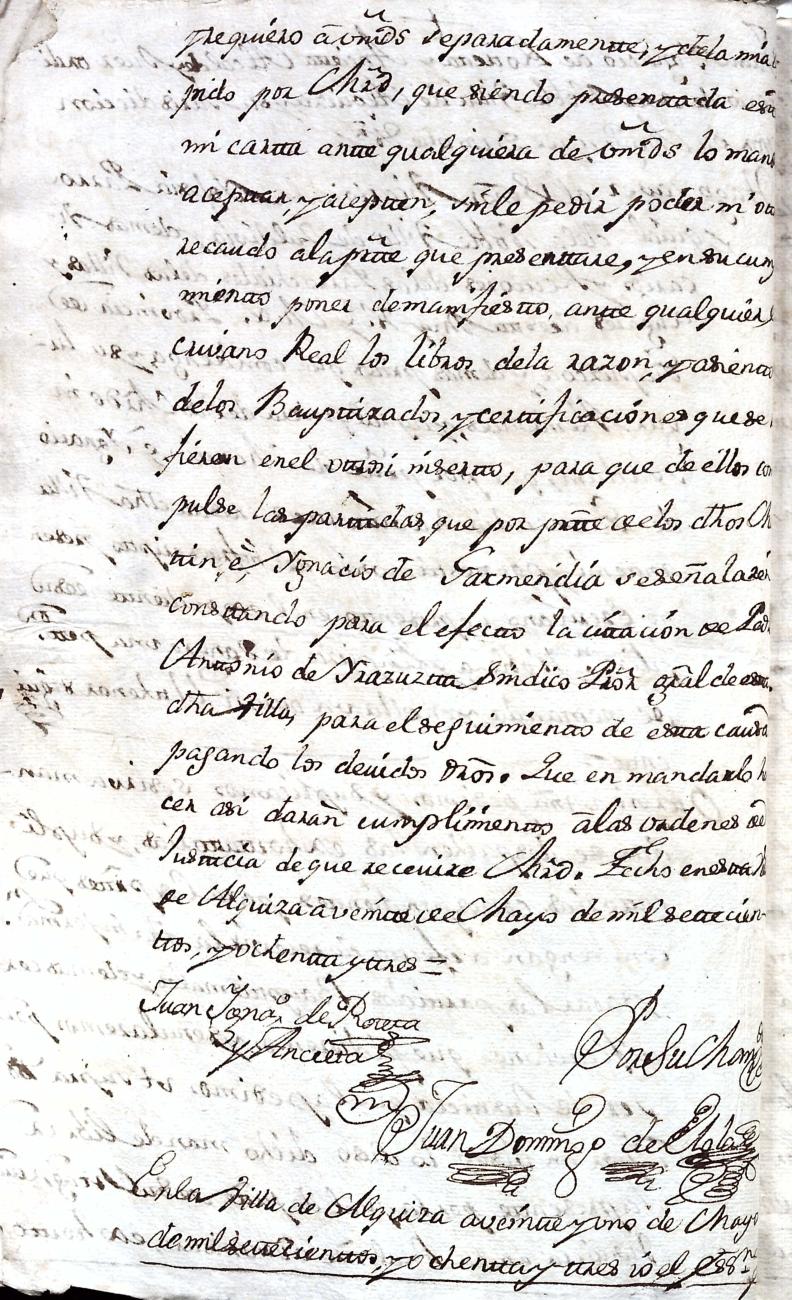 y requiero â vm̃ds separadamente, y de la mia
pido por Mrd̃, que siendo presentada esta
mi cartta antte qualquiera de vm̃ds lo man
acepttar, y acepten, sin le pedir poder ni otr
recaudo ala prt̃te que presenttare, y en su cum
mientto poner demanifiestto, antte qualquier
crivano Real los libros dela razon, y asientto
delos Bauptizados, y certtificaciones que se
fieren enel inserto, para que de ellos com
pulse las parttidas que por prt̃te de los dhos M
ttin, è, Ygnacio de Garmendia se señalaren
consttando para el efectto la cittacion de Pedro
Anttonio de Yrazuztta Sindico Pror gral de estta
dha Villa, para el seguimientto de estta causa
pagando los devidos dr̃os. Que en mandarlo h
cer asi daran cumplimientto â las ordenes de
Justticia de que recevire Mrd̃. Fecho en estta V
de Alquiza â veintte de Mayo de mil settecien-
ttos, y ochentta y ttres =
Juan Ygnaº de Roteta
y Ancietta
Por Su Man
Juan Domingo de Elola
Enla Villa de Alquiza a veintte y uno de Mayo
de mil settecienttos, y ochentta y ttres io el Essno